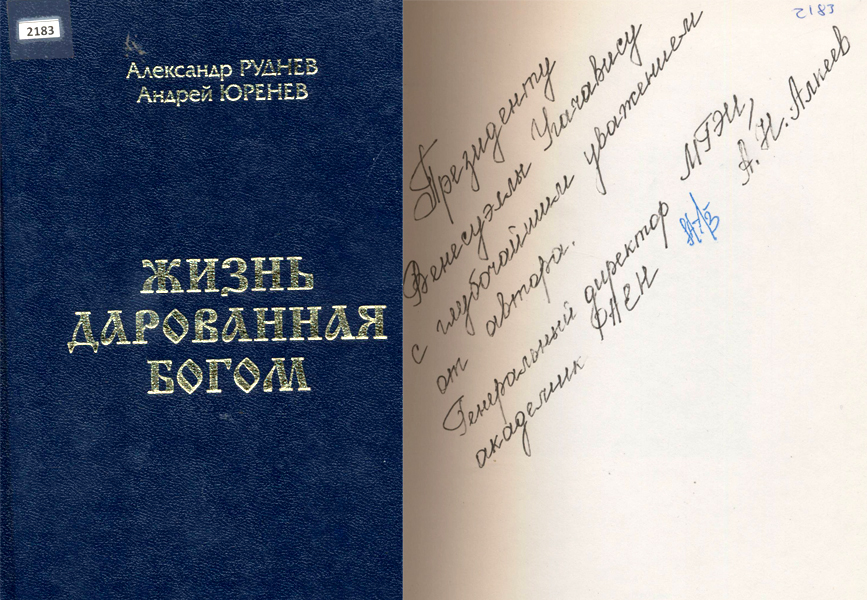 2183
Александр РУДНЕВ
Андрей ЮРЕНЕВ
ЖИЗНЬ
ДАРОВАННАЯ
БОГОМ
2183
Президенту
Венесуэлы Угичавису
с глубочайшим уважением
от автора.
Генеральный директор МГЭИ,
академик РАЕН
А. Н. Аликеев